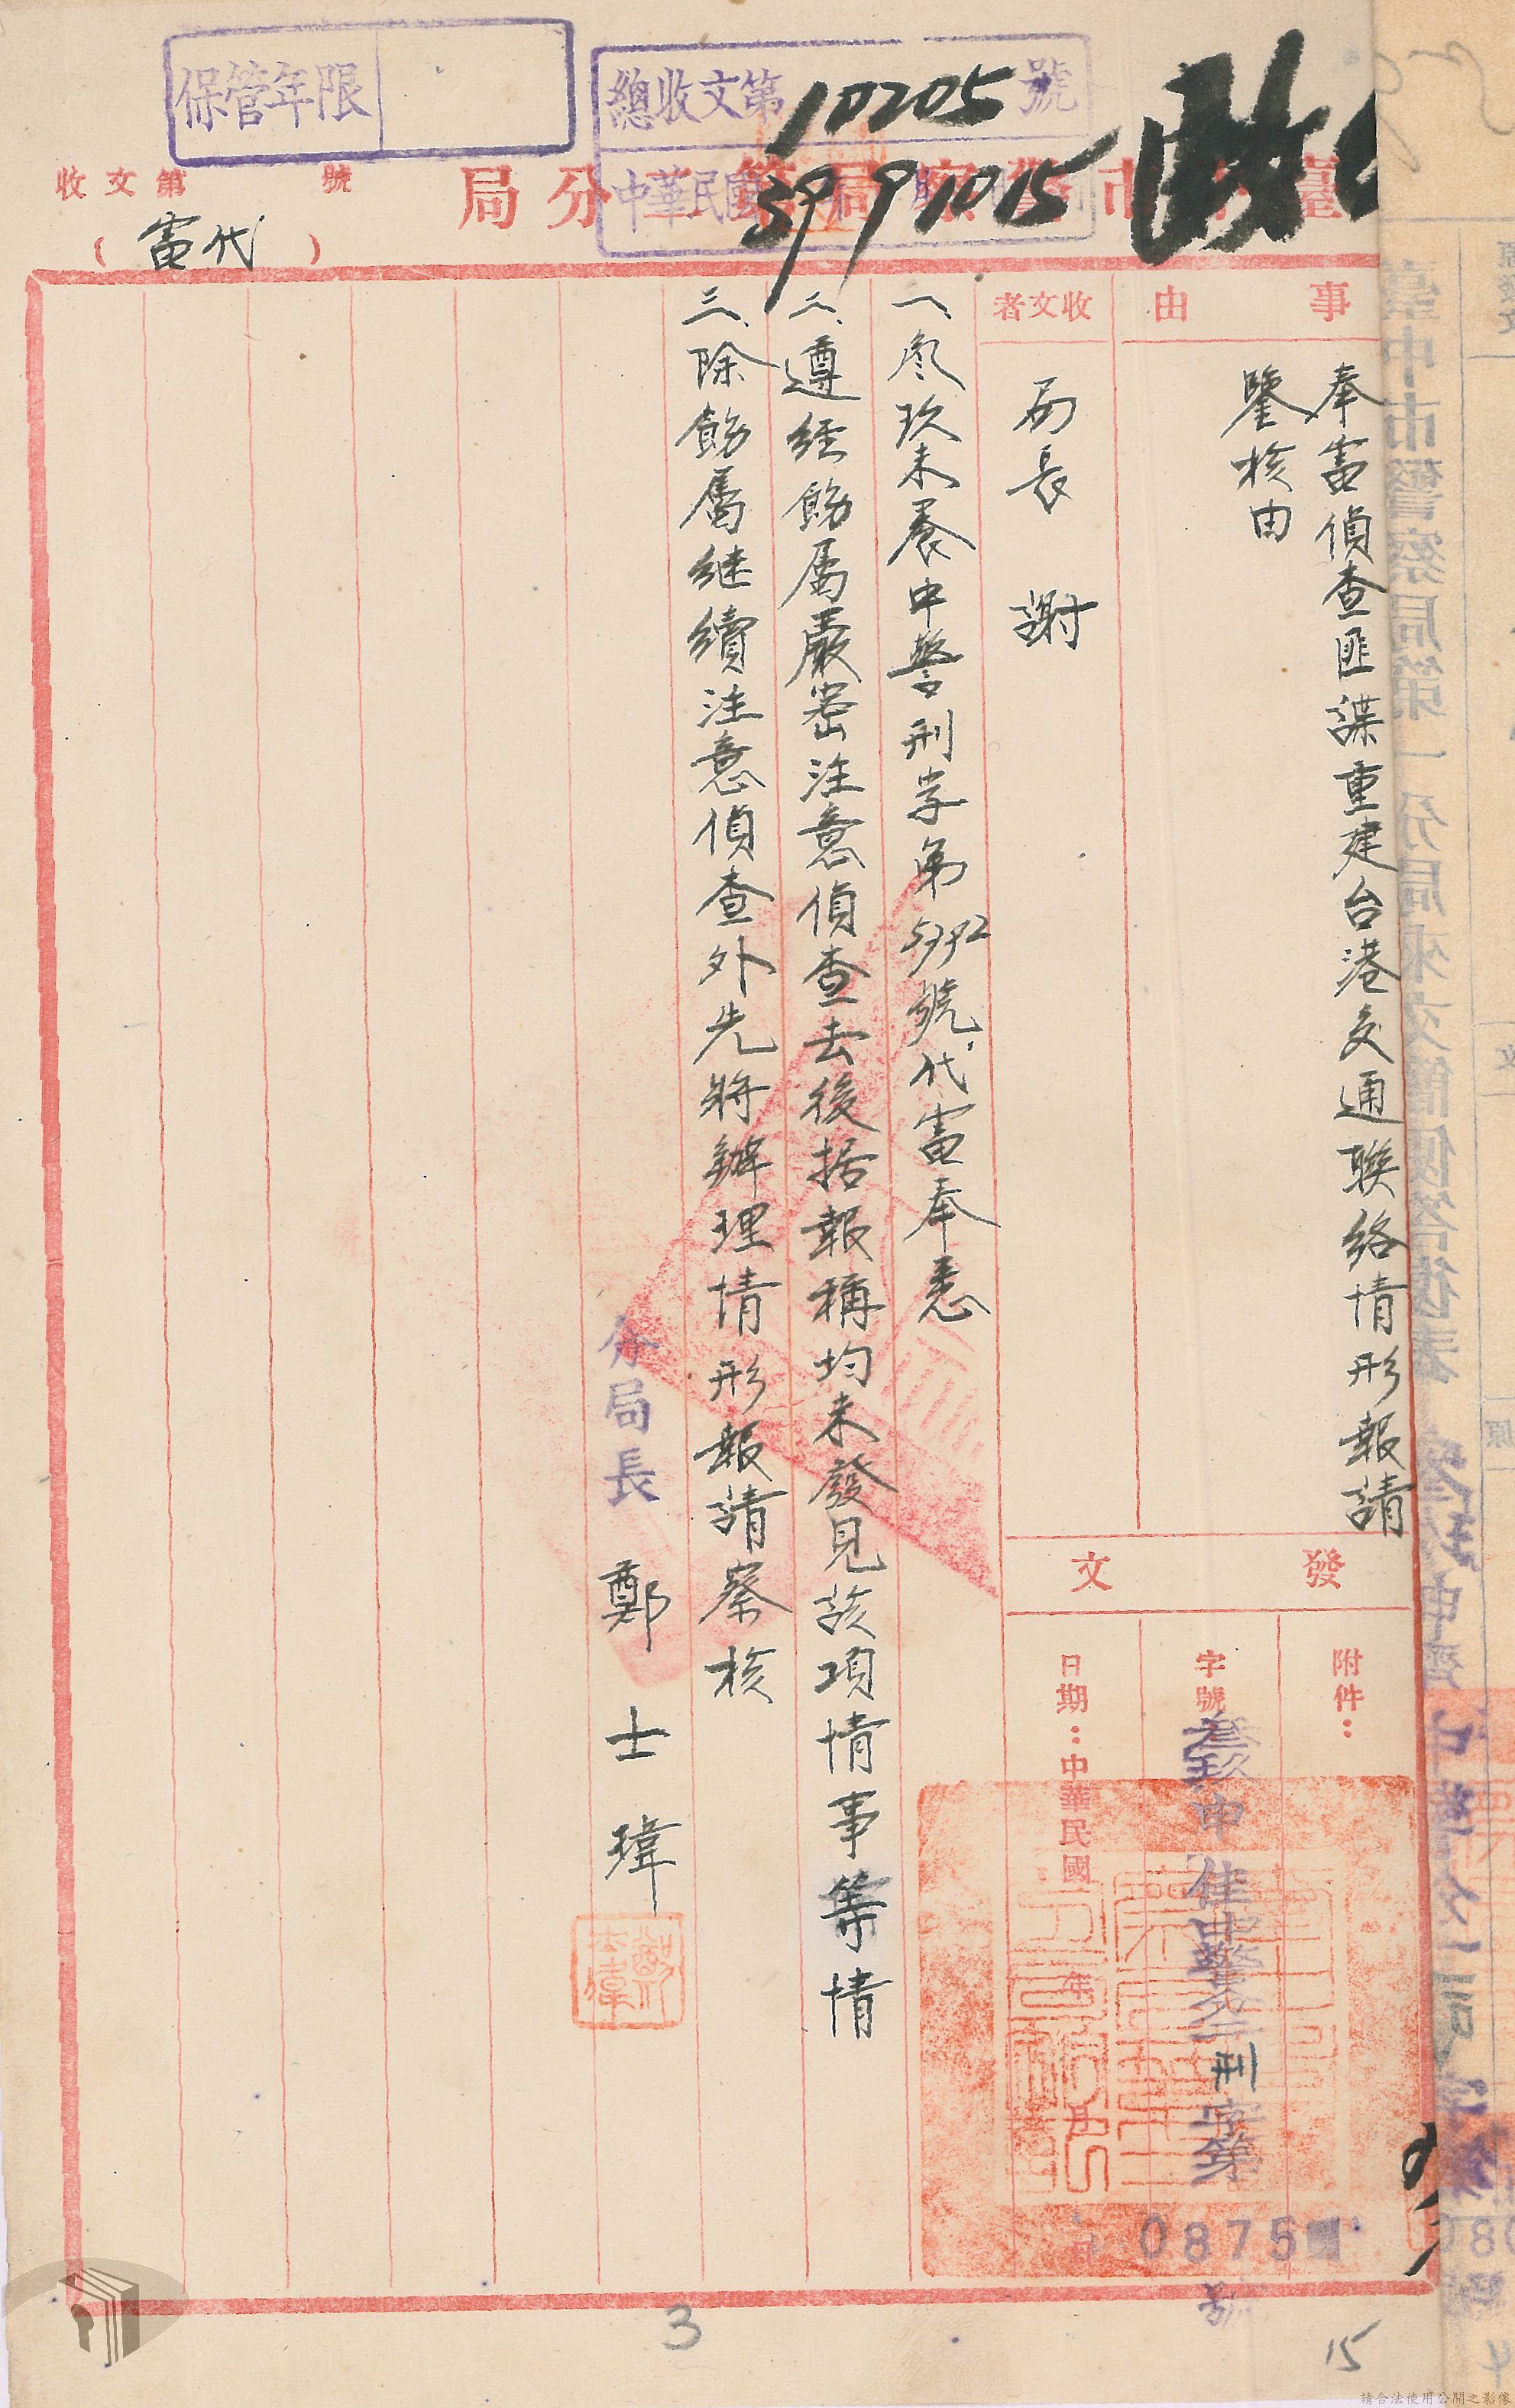 保管年限
總收文第10205號
中華民國39 9 1015
臺中市警察局第二分局
收文第 號
(電代)
事由
奉電偵查匪諜重建台港交通聯絡情形報請
鑒核由
收文者
局長 謝
發文
附件：
字號 叁玖申佳中警分二刑字第
0875 號
日期：中華民國 年 月 日
一、叁玖未養中警刑字第5792號代電奉悉
二、遵経飭属嚴密注意偵查去後据報稱均未發見該項情事等情
三、除飭属継續注意偵查外先將辦理情形報請察核
分局長 鄭士瑋
3
15
請合法使用公開之影像